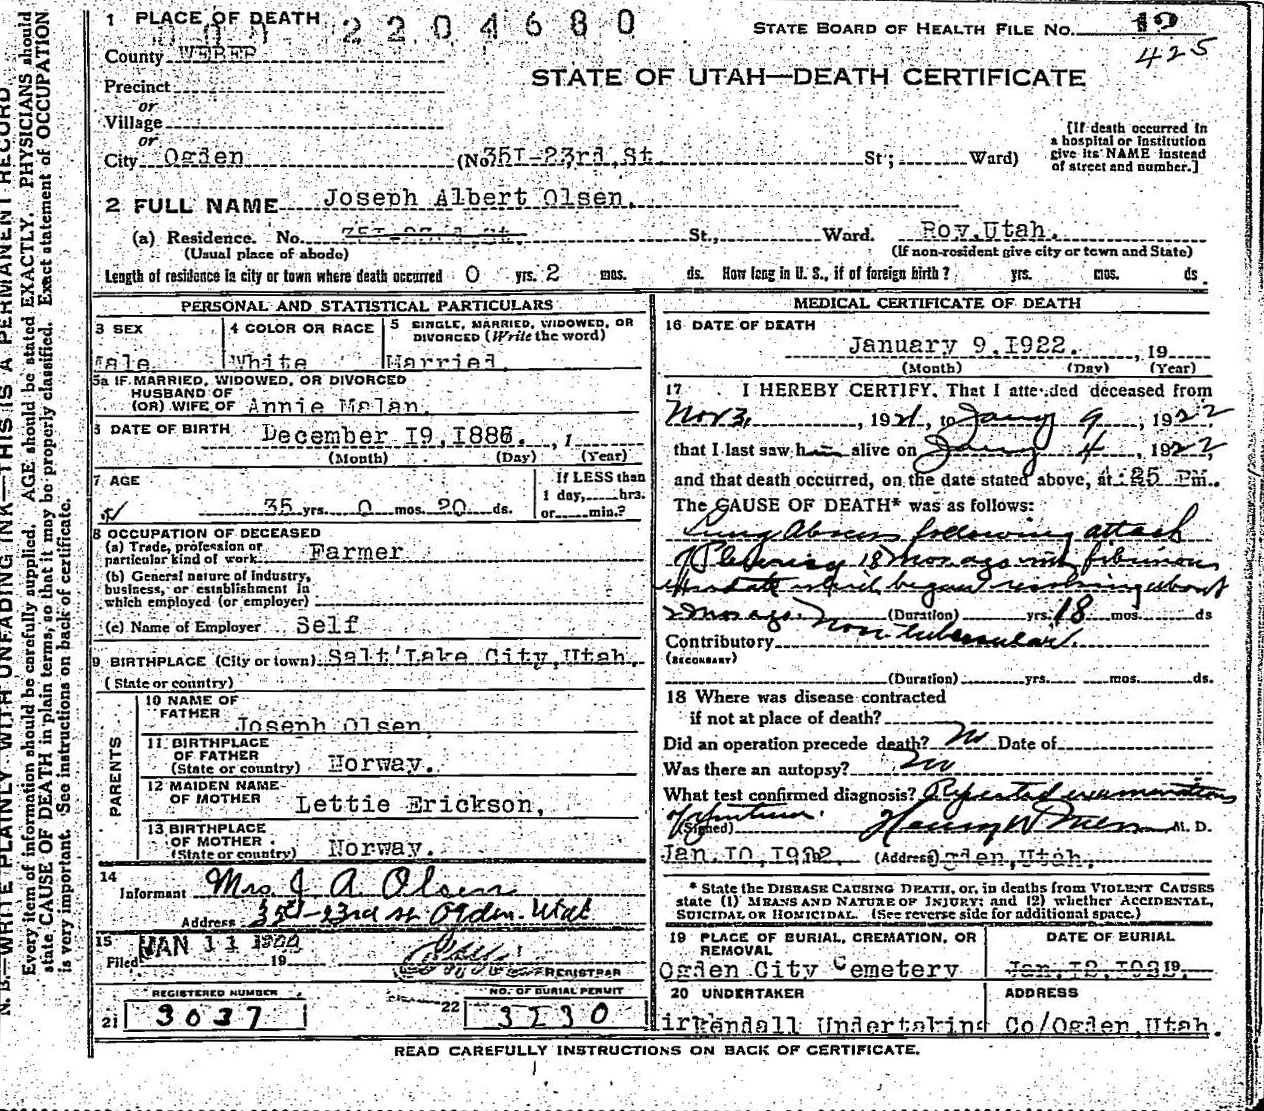 1 PLACE OF DEATH
2204680
STATE BOARD OF HEALTH FILE NO. 12
425
County WEBER
STATE OF UTAH—DEATH CERTIFICATE
Precinct
or
Village
or
City Ogden (No 351-23rd, St. St; Ward)
[If death occurred in
a hospital or institution
give its NAME instead
of street and number.]
2 FULL NAME Joseph Albert Olsen.
(a) Residence. No. St., Ward. Roy, Utah.
(Usual place of abode) (If non-resident give city or town and State)
Length of residence in city or town where death occurred 0 yrs. 2 mos. ds. How long in U. S., if of foreign birth? yrs. mos. ds
PERSONAL AND STATISTICAL PARTICULARS
3 SEX 4 COLOR OR RACE 5 SINGLE, MARRIED, WIDOWED, OR
DIVORCED (Write the word)
Male White Married.
5a IF MARRIED, WIDOWED, OR DIVORCED
HUSBAND OF
(OR) WIFE OF Annie Malan.
6 DATE OF BIRTH December 19, 1886. , 1
(Month) (Day) (Year)
7 AGE If LESS than
35 yrs. 0 mos. 20 ds. 1 day, hrs.
or min.?
8 OCCUPATION OF DECEASED
(a) Trade, profession or
particular kind of work Farmer
(b) General nature of industry,
business, or establishment in
which employed (or employer)
(c) Name of Employer Self
9 BIRTHPLACE (City or town) Salt Lake City, Utah.
(State or country)
PARENTS
10 NAME OF
FATHER Joseph Olsen
11 BIRTHPLACE
OF FATHER
(State or country) Norway.
12 MAIDEN NAME
OF MOTHER Lettie Erickson,
13 BIRTHPLACE
OF MOTHER
(State or country) Norway.
14
Informant Mrs J A Olsen
Address 351-23rd St Ogden Utah
15 JAN 11 1922
Filed 19
REGISTRAR
REGISTERED NUMBER NO. OF BURIAL PERMIT
21 3637 22 3130
MEDICAL CERTIFICATE OF DEATH
16 DATE OF DEATH
January 9, 1922. , 19
(Month) (Day) (Year)
17 I HEREBY CERTIFY, That I attended deceased from
Nov 3, , 1921, to Jany 9 , 1922
that I last saw him alive on Jany 4 , 1922
and that death occurred, on the date stated above, at 4:25 Pm.
The CAUSE OF DEATH* was as follows:
Lung Abscess following attack
of Pleurisy 18 Mos ago with fibrinous
exudate which began resolving about
2 mos ago. (Duration) yrs. 18 mos. ds
Non tubercular.
Contributory
(SECONDARY)
(Duration) yrs. mos. ds.
18 Where was disease contracted
if not at place of death?
Did an operation precede death? No Date of
Was there an autopsy? No
What test confirmed diagnosis? Repeated examinations
of sputum.
(Signed) Henry W M. D.
Jan. 10, 1922. (Address) Ogden, Utah.
* State the DISEASE CAUSING DEATH, or, in deaths from VIOLENT CAUSES
state (1) MEANS AND NATURE OF INJURY; and (2) whether ACCIDENTAL,
SUICIDAL OR HOMICIDAL. (See reverse side for additional space.)
19 PLACE OF BURIAL, CREMATION, OR DATE OF BURIAL
REMOVAL
Ogden City Cemetery Jan. 12, 192 19
20 UNDERTAKER ADDRESS
irkendall Undertaking Co/Ogden, Utah.
READ CAREFULLY INSTRUCTIONS ON BACK OF CERTIFICATE.
N. B.—WRITE PLAINLY WITH UNFADING INK—THIS IS A PERMANENT RECORD
Every item of information should be carefully supplied. AGE should be stated EXACTLY. PHYSICIANS should
state CAUSE OF DEATH in plain terms, so that it may be properly classified. Exact statement of OCCUPATION
is very important. See instructions on back of certificate.